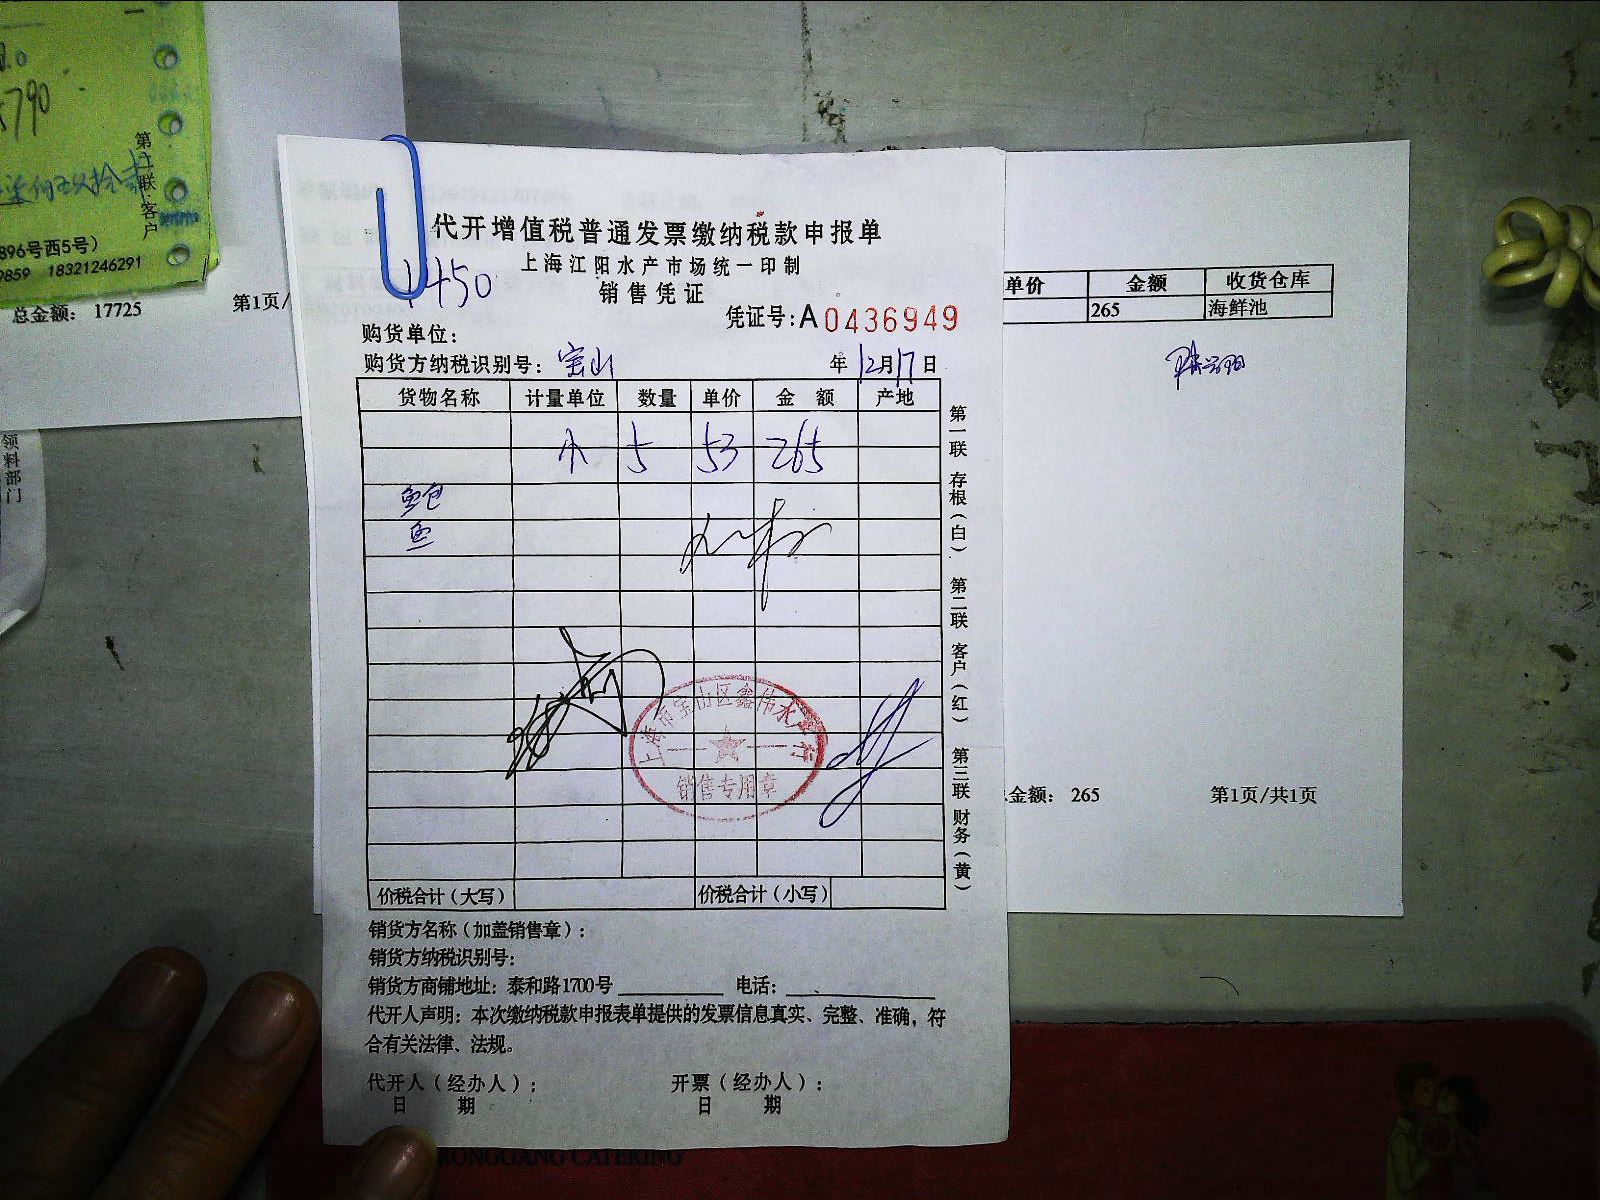 790
第二联:客户
896号西5号）
9859 18321246291
总金额： 17725
第1页/
领料部门
代开增值税普通发票缴纳税款申报单
上海江阳水产市场统一印制
销售凭证
450
凭证号:A0436949
购货单位:
购货方纳税识别号: 宝山 年12月17日
货物名称 计量单位 数量 单价 金额 产地
5 53 265
鲍
鱼
上海市宝山区鑫伟水产行
销售专用章
价税合计（大写） 价税合计（小写）
第一联 存根（白） 第二联 客户（红） 第三联 财务（黄）
销货方名称（加盖销售章）:
销货方纳税识别号:
销货方商铺地址：泰和路1700号 电话:
代开人声明：本次缴纳税款申报表单提供的发票信息真实、完整、准确，符
合有关法律、法规。
代开人（经办人）: 开票（经办人）:
日 期 日 期
单价 金额 收货仓库
265 海鲜池
金额： 265 第1页/共1页
RONGGANG CATERING